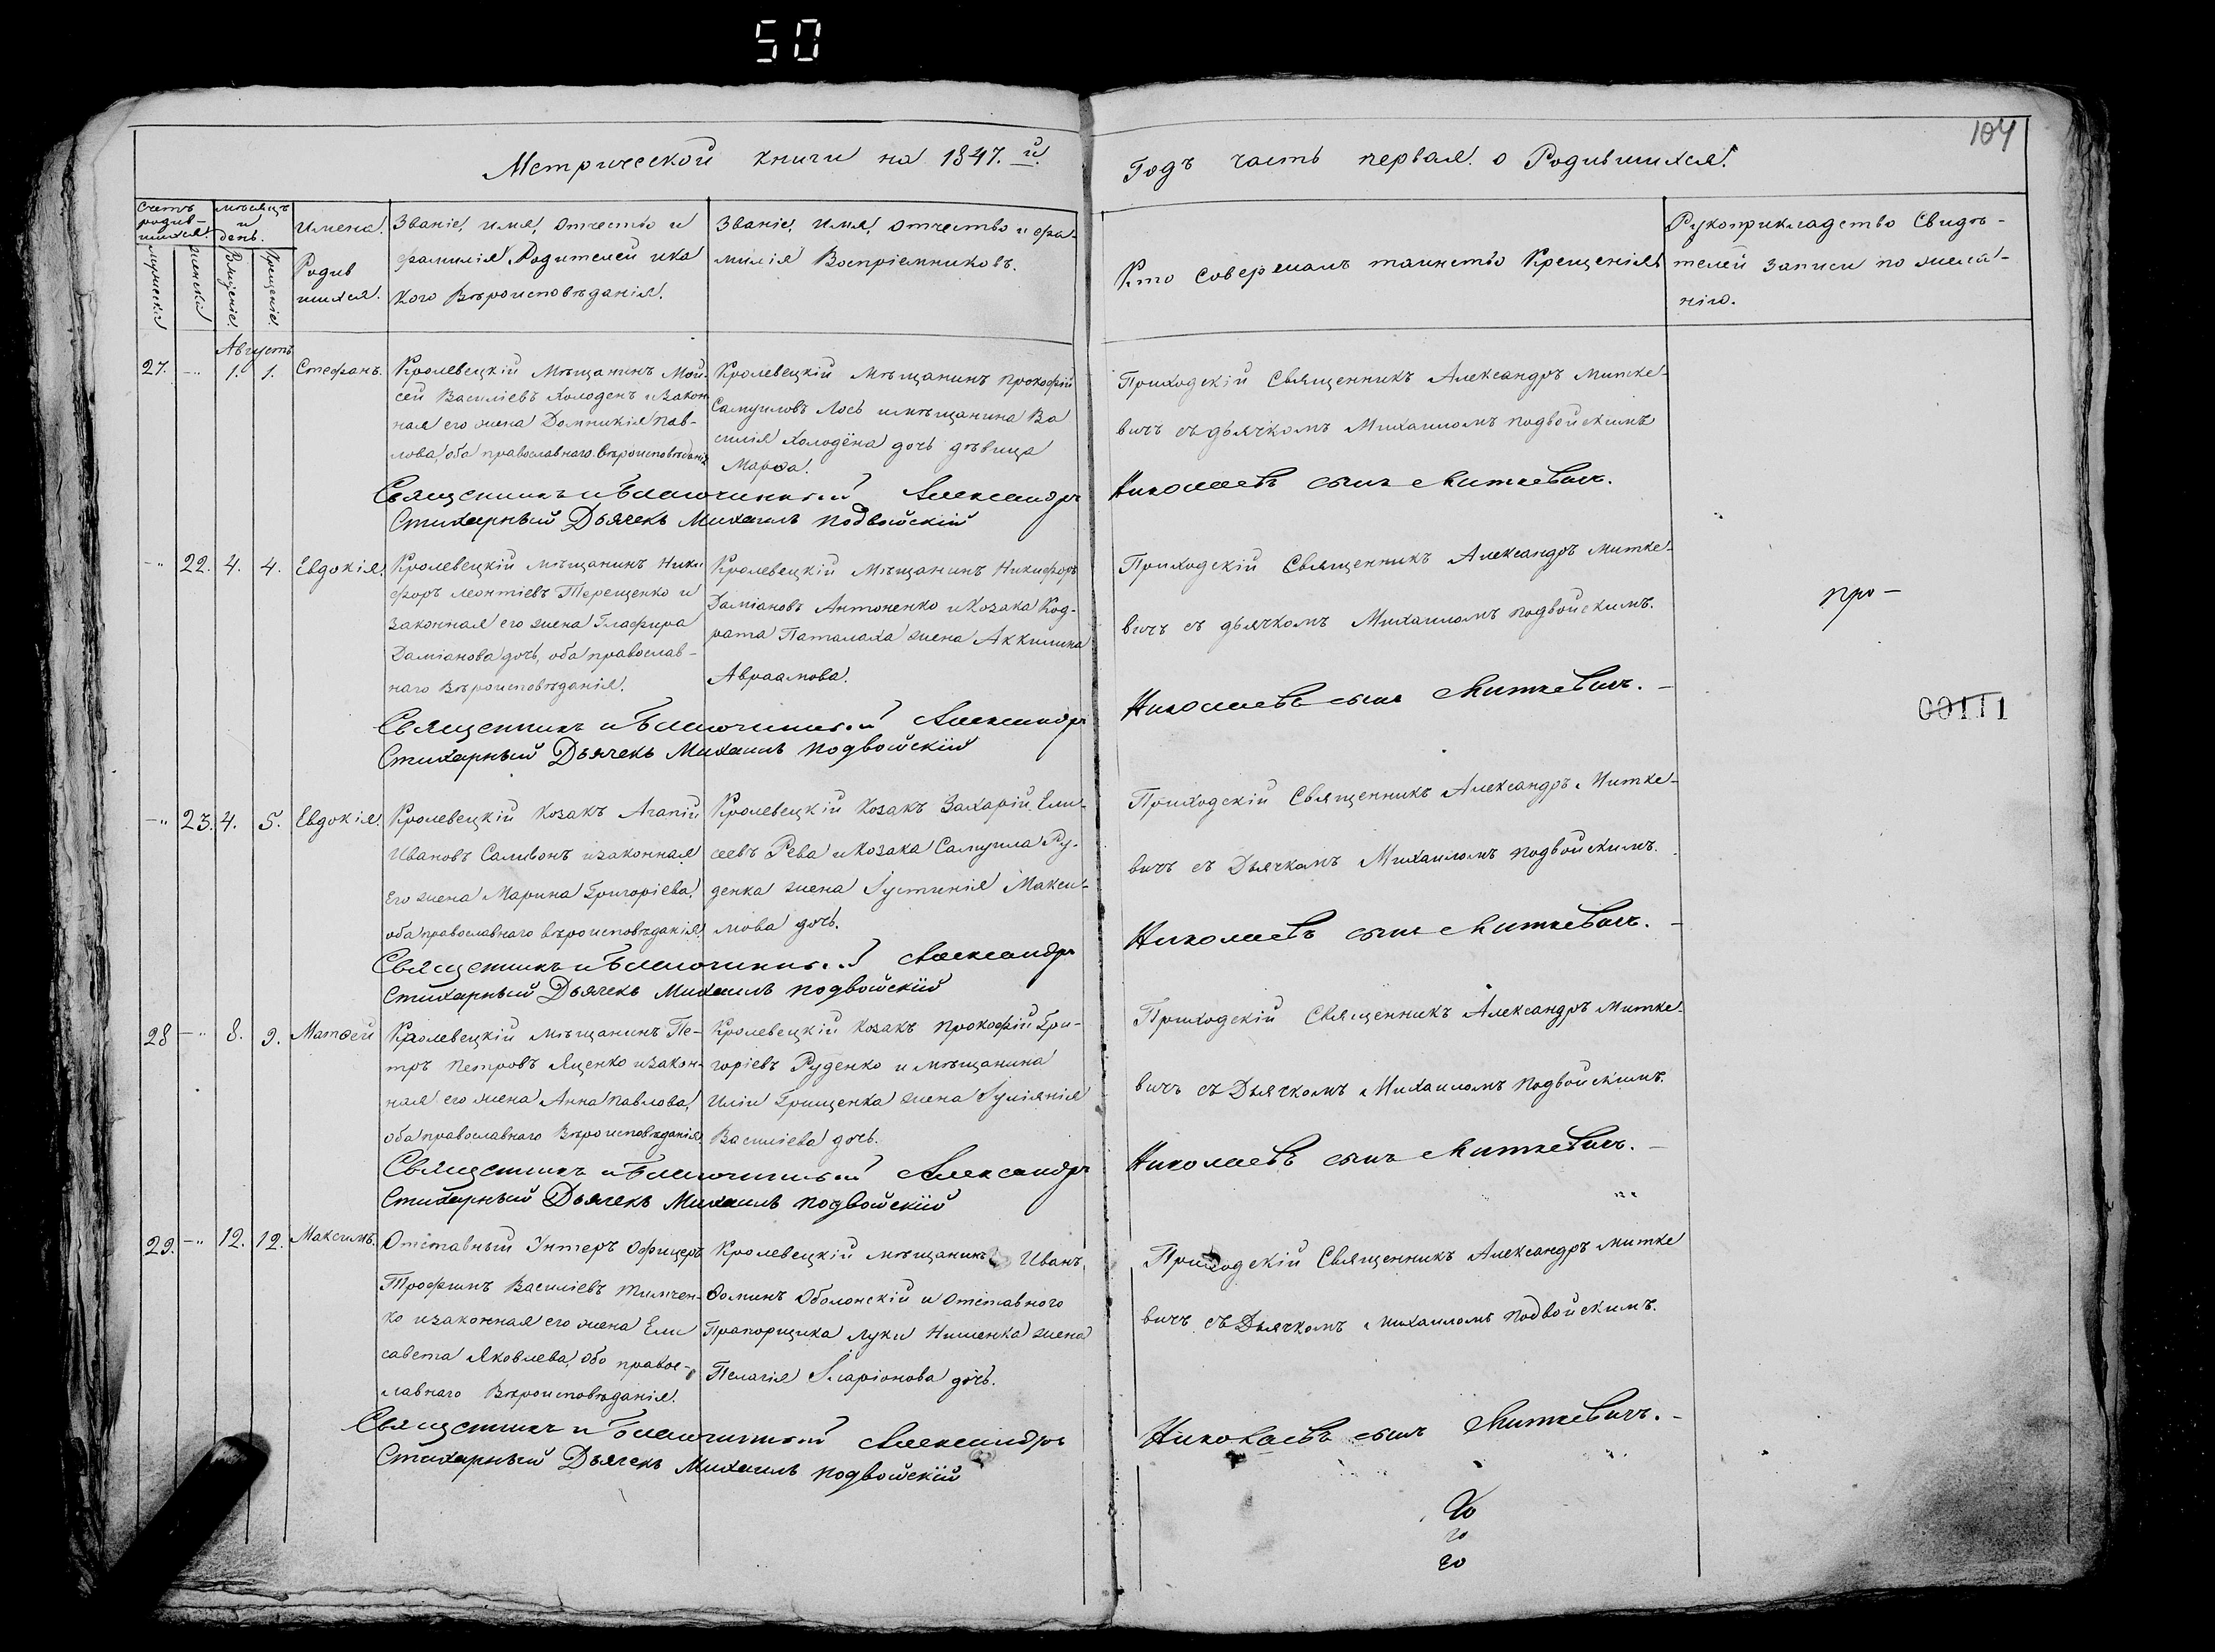 50
104
Метрической книги на 1847. й.
Годъ часть первая. о Родившихся.
Счетъ
родив-
шихся.
мужеска
женска
мѣсяцъ
и
день.
Рожденіе.
Крещеніе.
Имена.
Родив
шихся.
Званіе, имя, отчество и
фамилія Родителей и ка
кого Вѣроисповѣданія.
Званіе, Имя, отчество и фа-
милія Воспріемниковъ.
Кто совершалъ таинство Крещенія
Рукоприкладство Свидѣ-
телей записи по жела-
нію.
Августъ
27. -„ 1. 1. Стефанъ.
Кролевецкій Мѣщанинъ Мои-
сей Василіевъ Холоденъ и закон
ная его жена Домникія Пав-
лова, оба православнаго вѣроисповѣданія
Кролевецкій мѣщанинъ Прокофій
Самуиловъ Лось и мѣщанина Ва
силія Холодёна дочь дѣвица
Марѳа.
Приходскій Священникъ Александръ Митке-
вичъ съ дьячкомъ Михаиломъ Подвойскимъ
Священникъ и Благочинный Александръ
Николаевъ сынъ Миткевичъ.
Стихарный Дьячекъ Михаилъ Подвойскій
-„ 22. 4. 4. Евдокія.
Кролевецкій мѣщанинъ Ники
форъ Леонтіевъ Терещенко и
законная его жена Глафира
Даміанова дочь, оба православ-
наго Вѣроисповѣданія.
Кролевецкій Мѣщанинъ Никифоръ
Даміановъ Антоненко и Козака Код-
рата Паталаха жена Аккилина
Авраамова.
Приходскій Священникъ Александръ Митке-
вичъ съ дьячкомъ Михаиломъ Подвойскимъ.
про-
Священникъ и Благочинный Александръ
Николаевъ сынъ Миткевичъ. -
00111
Стихарный Дьячекъ Михаилъ Подвойскій
-„ 23. 4. 5. Евдокія.
Кролевецкій Козакъ Агапій
Ивановъ Саливонъ и законная
Его жена Марина Григоріева,
оба православнаго вѣроисповѣданія.
Кролевецкій Козакъ Захарій Ели-
сеевъ Рева и Козака Самуила Ру-
денка жена Іустинія Макси-
мова дочь.
Приходскій Священникъ Александръ Митке-
вичъ съ Дьячкомъ Михаиломъ Подвойскимъ.
Священникъ и Благочинный Александръ
Николаевъ сынъ Миткевичъ. -
Стихарный Дьячекъ Михаилъ Подвойскій
28 -„ 8. 9. Матѳей
Кролевецкій мѣщанинъ Пе-
тръ Петровъ Яценко и закон-
ная его жена Анна Павлова,
оба православнаго Вѣроисповѣданія.
Кролевецкій Козакъ Прокофій Гри-
горіевъ Руденко и мѣщанина
Иліи Грищенка жена Іуліянія
Василіева дочь.
Приходскій Священникъ Александръ Митке-
вичъ съ Дьячкомъ Михаиломъ Подвойскимъ.
Священникъ и Благочинный Александръ
Николаевъ сынъ Миткевичъ. -
Стихарный Дьячекъ Михаилъ Подвойскій
29. -„ 12. 12. Максимъ.
Отставный Унтеръ Офицеръ
Трофимъ Василіевъ Тимчен-
ко и законная его жена Ели
савета Яковлева, обо правос-
лавнаго Вѣроисповѣданія.
Кролевецкій мѣщанинъ Иванъ
Ѳоминъ Оболонскій и отставного
Прапорщика Луки Нименка жена
Пелагія Иларіонова дочь.
Приходскій Священникъ Александръ Митке
вичъ съ Дьячкомъ Михаиломъ Подвойскимъ.
Священникъ и Благочинный Александръ
Николаевъ сынъ Миткевичъ. -
Стихарный Дьячекъ Михаилъ Подвойскій